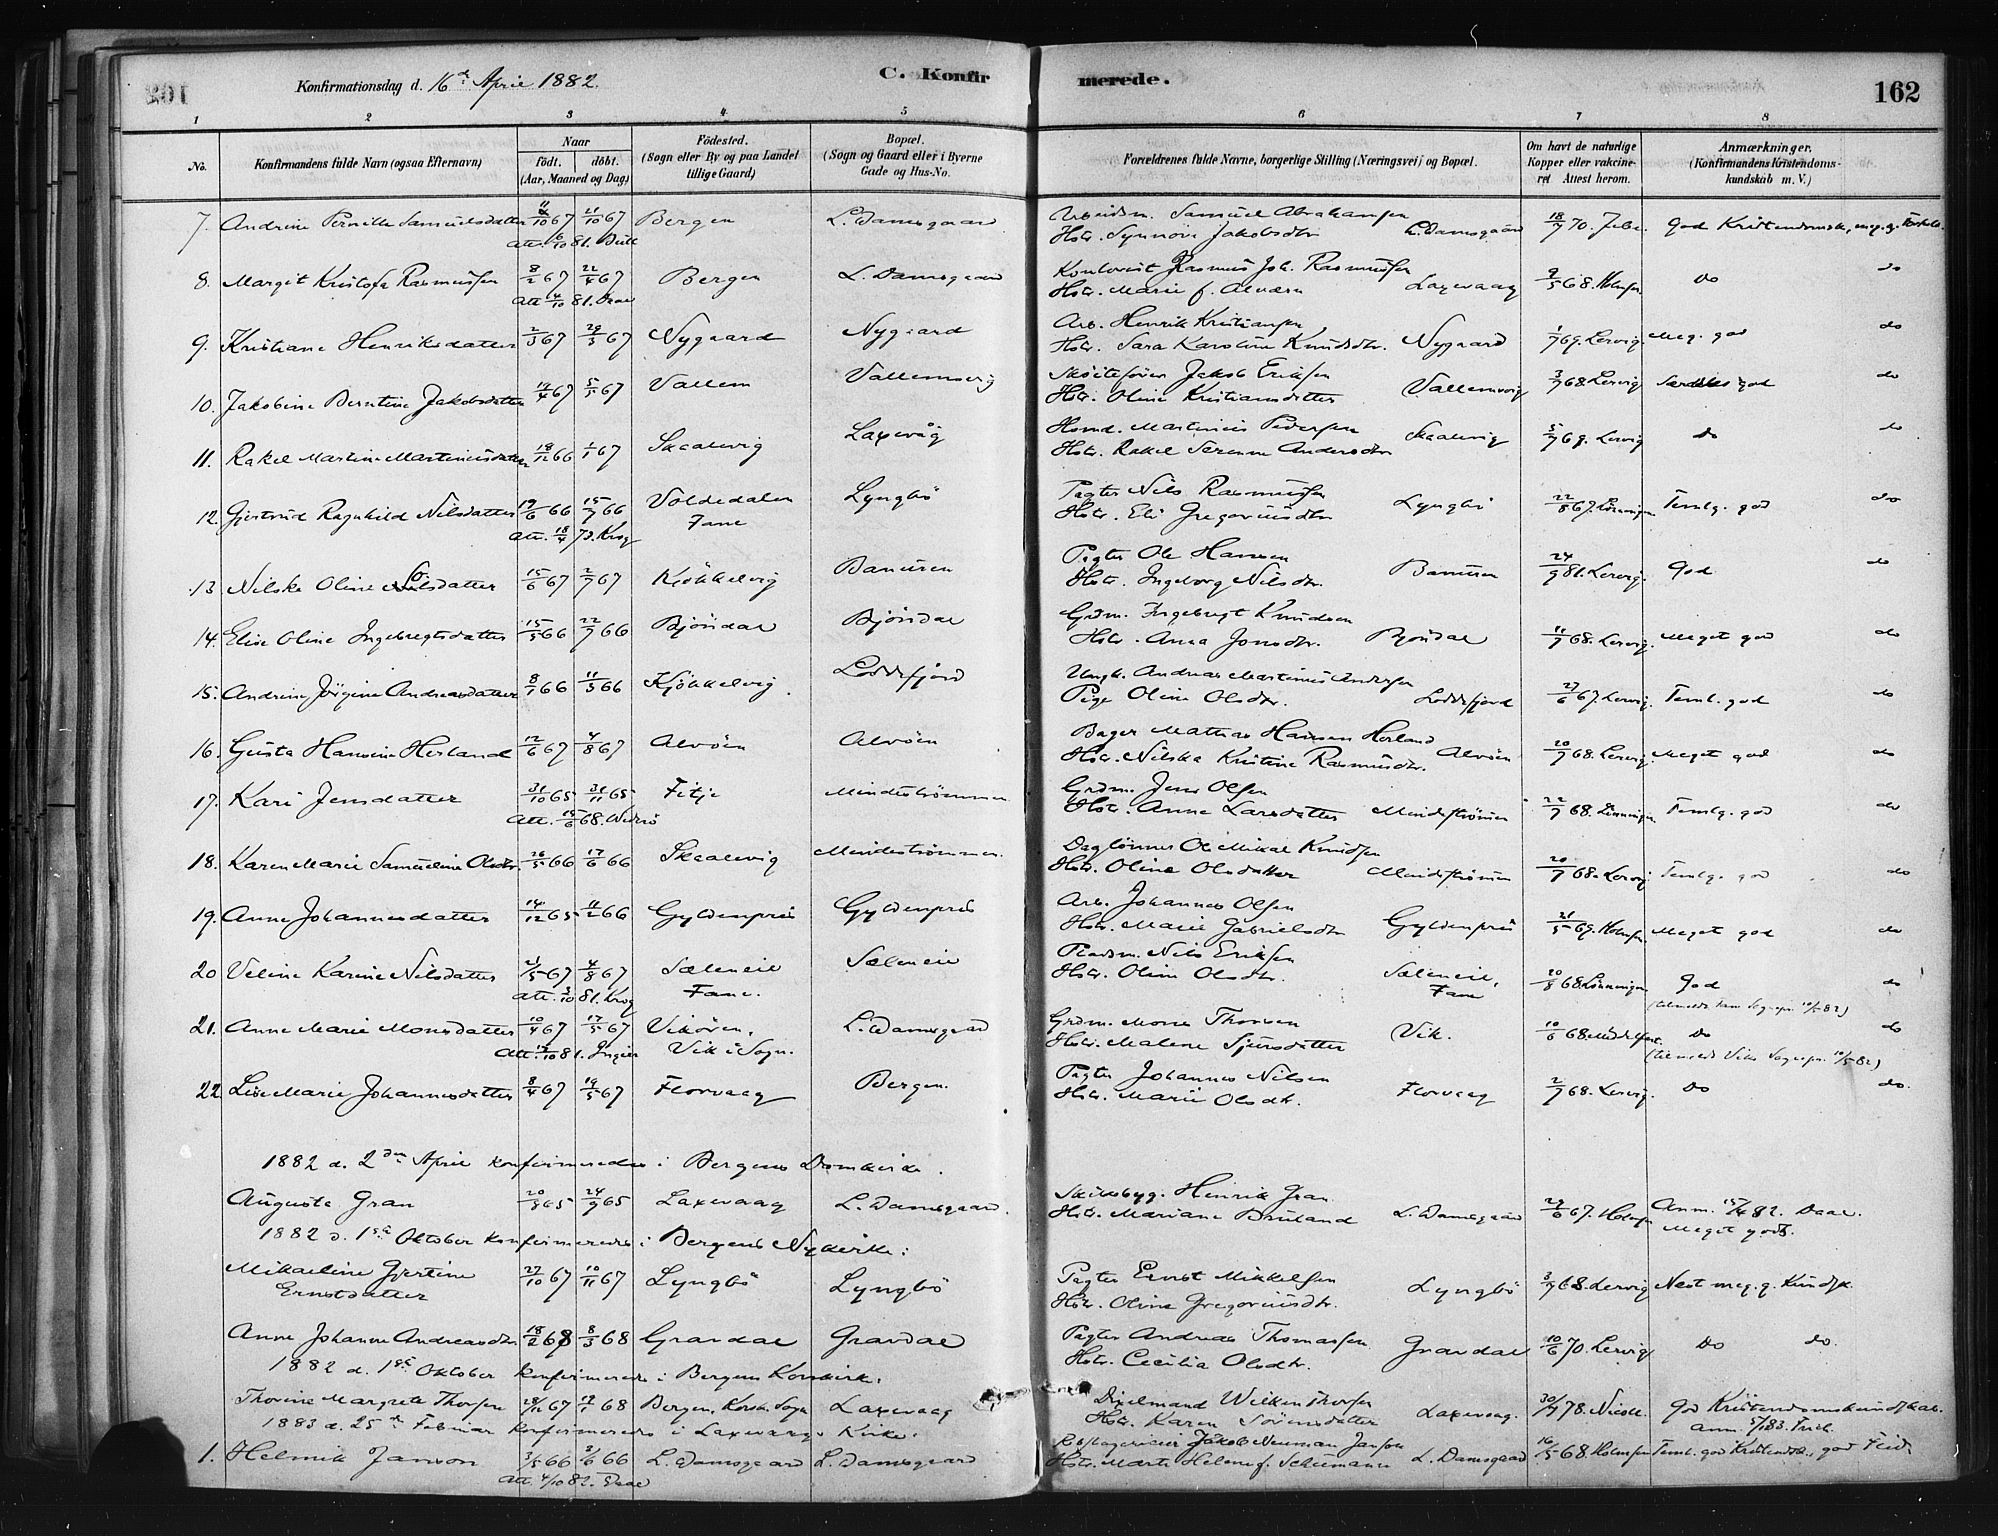 Konfirmationsdag d. 16de April 1882.
C. Konfirmerede.
162
1 2 3 4 5 6 7 8
No.
Konfirmandens fulde Navn (ogsaa Efternavn)
Naar
födt. döbt.
(Aar, Maaned og Dag)
Födested.
(Sogn eller By og paa Landet tillige Gaard)
Bopæl.
(Sogn og Gaard eller i Byerne Gade og Hus-No.
Forældrenes fulde Navne, borgerlige Stilling (Næringsvei) og Bopæl.
Om havt de naturlige Kopper eller vakcineret Attest herom.
Anmærkninger.
(Konfirmandens Kristendomskundskab m. V.)
7. Andrine Pernille Samuelsdatter 21/10 67 Bergen L. Damsgaard
Arbeidsm. Samuel Abrahamsen
Hstr. Synnöve Jakobsdtr L. Damsgaard 18/7 70. god Kristendomsk.
8. Margit Kristofa Rasmussen 8/2 67 22/4 67 Bergen L. Damsgaard
Att. 4/10 81. Daae
Rasmus Joh. Rasmussen
Hstr. Marie f. Laxevaag 9/5 68. Holmsen Do do
9. Kristiane Henriksdatter 2/3 67 29/5 67 Nygaard Nygaard
Arb. Henrik Kristiansen
Hstr. Sara Karoline Knudsdtr. Nygaard 1/7 69. Lervig. Meg. god do
10. Jakobine Berntine Jakobsdatter 14/4 67 5/5 67 Vallem Vallemsvig
Jakob Eriksen
Hstr. Oline Kristiansdatter Vallemsvig 3/7 68. Lervig Særdeles god do
11. Rakel Martine Martinusdatter 18/12 66 1/1 67 Skaalevig Laxevåg
Husmd. Martinius Pedersen
Hstr. Rakel Serene Andersdtr Skaalevig 5/7 69. Lervig Do do
12. Gjertrud Ragnhild Nilsdatter 19/6 66 15/7 66 Voldedalen Lyngbö
Att. 18/4 73. Krog Fane
Pagter Nils Rasmussen
Hstr. Eli Gregoriusdtr Lyngbö 22/8 67. Lönningen Temlg. god do
13 Nilske Oline Olsdatter 15/6 67 2/7 67 Kjökkelvig Banuren
Pagter Ole Hansen
Hstr. Ingeborg Nilsdtr. Banuren 24/9 81. Lervig. God do
14. Elise Oline Ingebregtsdatter 15/5 66 22/7 66 Bjöndal Bjöndal
Grdm. Ingebregt Knudsen
Hstr. Anna Jonsdtr. Bjöndal 11/7 68. Lervig. Meget god do
15. Andrine Jörgine Andreasdatter 8/1 66 11/3 66 Kjökkelvig. Loddefjord
Ungk. Andreas Martinus Andersen
Pige Oline Olsdtr. Loddefjord 27/6 67. Lervig. Temlg. god do
16. Gusta Hansine Herland 12/6 67 4/8 67 Alvöen Alvöen
Bager Mathias Hansen Herland
Hstr. Nilska Kristine Rasmusdtr. Alvöen 20/7 68. Lervig. Meget god do
17. Kari Jensdatter 31/10 65 Fitje Mindeströmmen
Grdm. Jens Olsen
Hstr. Anne Larsdatter Mindeströmmen 22/7 68. Lönningen Temlg. god do
18. Karen Marie Samueline Olsdtr. 26/5 66 17/6 66 Skaalevig Mindeströmmen.
Daglönner Ole Mikal Knudsen
Hstr. Oline Olsdatter Mindeströmmen 20/7 68. Lervig Temlg. god do
19. Anne Johannesdatter 14/12 65 11/2 66 Gyldenpris Gyldenpris
Arb. Johannes Olsen
Hstr. Marie Gabrielsdtr Gyldenpris 21/5 69. Holmsen. Meget god do
20 Veline Karine Nilsdatter 4/8 67 Sæleneie Sæleneie
Att. 3/10 81. Krog Fane.
Pladsm. Nils Eriksen
Hstr. Oline Olsdtr. Sæleneie, Fane 20/8 68. Lönningen God do
21. Anne Marie Monsdatter 10/4 67 17/5 67 Vikören, Vik i Sogn. L. Damsgaard
Grdm. Mons Thorsen
Hstr. Malene Sjursdatter Vik. 10/6 68. Do do
22 Lise Marie Johannesdatter 8/4 67 19/5 67 Florvaag Bergen.
Pagter Johannes Nilsen
Hstr. Marie Olsdtr. Florvaag 2/7 68. Lervig. Do do.
1882 d. 2den April konfirmeredes i Bergens Domkirke.
Augusta Gran 24/9 65 Laxevaag L. Damsgaard.
Skibsbyg. Henrik Gran
Hstr. Mariane Bruland L. Damsgaard 67. Holmsen Anm. 15/4 82. Daae. Meget godt.
1882 d. 1ste Oktober konfirmeredes i Bergens Nykirke:
Mikaeline Gjertine Ernstdatter 27/10 67 10/11 67 Lyngbö Lyngbö
Pagter Ernst Mikkelsen
Hstr. Oline Gregoriusdtr. Lyngbö 3/7 68. Lervig Næst meg. g. Kundsk.
Anne Johanne Andreasdtr 18/2 68 8/3 68 Gravdal Gravdal
Pagter Andreas Thomassen
Hstr. Cecilia Olsdtr. Gravdal 10/6 70. Lervig Do do.
1882 d. 1ste Oktober konfirmeredes i Bergens Korskirke.
Thorine Margrete Thorsen 28/12 67 68 Bergen, Korsk. Sogn Laxevaag
Wilken Thorsen
Hstr. Karen Sörensdatter Laxevaag. God Kristendomskundskab.
1883 d. 25de Februar konfirmeredes i Laxevaags Kirke.
1. Helmik Janson 3/5 66 2/6 66 L. Damsgaard L. Damsgaard
Att. 4/10 82. Daae
Jakob Neuman Janson
Hstr. Marte Helene f. L. Damsgaard 16/5 68 Holmsen Teml. god Kristendsk., god Flid